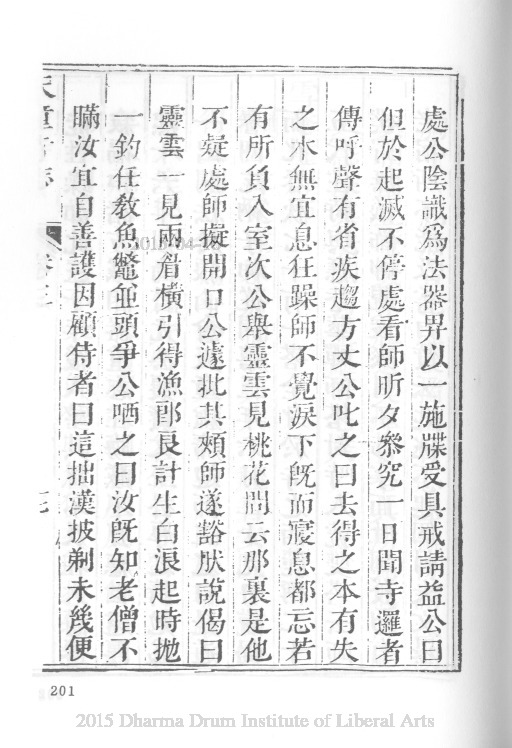 處公陰識爲法器畀以一施牒受具戒請益公曰
但於起滅不停處看師昕夕叅究一日聞寺邏者
傳呼聲有省疾趨方丈公叱之曰去得之本有失
之本無宜息狂躁師不覺淚下旣而寢息都忘若
有所負入室次公舉靈雲見桃花問云那裏是他
不疑處師擬開口公遽批其頰師遂豁肰說偈曰
靈雲一見兩眉橫引得漁郎良計生白浪起時拋
一釣任敎魚鼈並頭爭公哂之曰汝旣知老僧不
瞞汝宜自善護因顧侍者曰這拙漢披剃未幾便
天童寺志
卷三
201
2015 Dharma Drum Institute of Liberal Arts